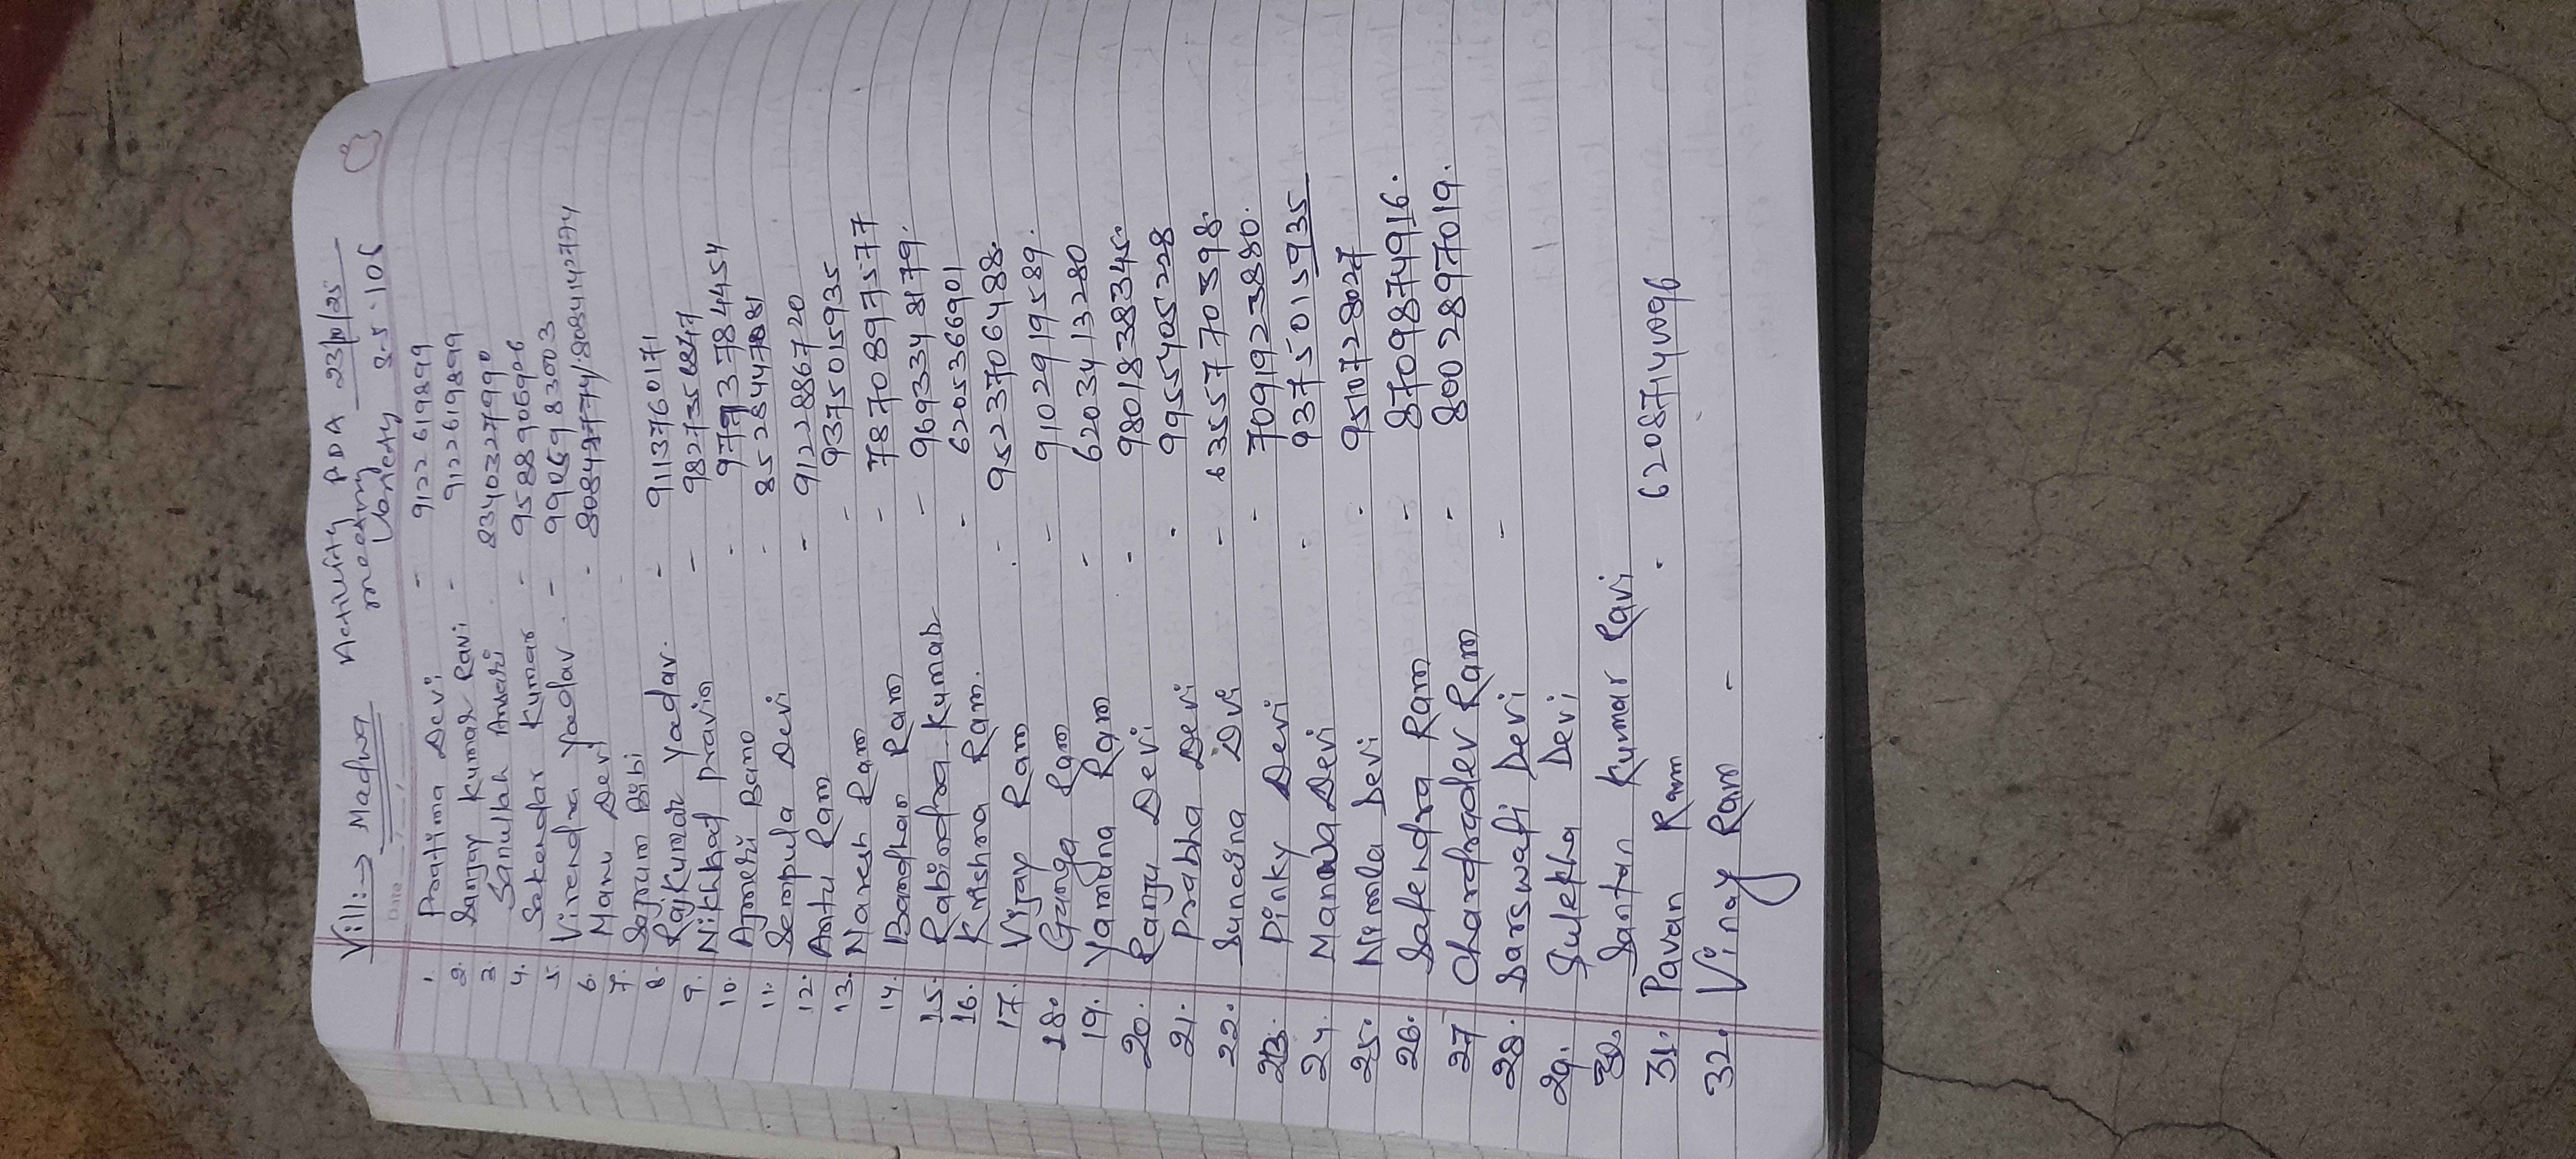 Vill:→ Madwa Activity PDA 23/10/25
meeting
Variety 3-5-106
Date
1. Pratima Devi - 9122619899
2. Sanjay Kumar Ravi - 9122619899
3. Sanullah Ansari 8340327990
4. Sakendar Kumar - 9588906906
5. Virendra Yadav - 9906983003
6. Manu Devi -
7. Sajrum Bibi
8. Rajkumar Yadav. - 9113760171
9. Nikhhat pravin - 9827358847
10. Ajmeri Bano -
11. Sempula Devi -
12. Antu Ram - 9122886720
13. Naresh Ram - 9375015935
14. Bandhan Ram - 7870897577
15. Rabindra Kumar - 9693348179.
16. Krishna Ram. - 6205366901
17. Vijay Ram - 9523706488.
18. Ganga Ram - 9102919589.
19. Yamuna Ram - 6203413280
20. Ranju Devi - 9801838345.
21. Prabha Devi - 9955405228
22. Sunaina Dvi - 6355770398.
23. Pinky Devi - 7091923880.
24. Manwa Devi - 9375015935
25. Nirmla Devi - 9510728027
26. Satendra Ram - 8709874916.
27 Chardradev Ram - 8002897019.
28. Sarswati Devi -
29. Sulekha Devi
30. Santan Kumar Ravi
31. Pavan Ram - 62087140096
32. Vinay Ram -